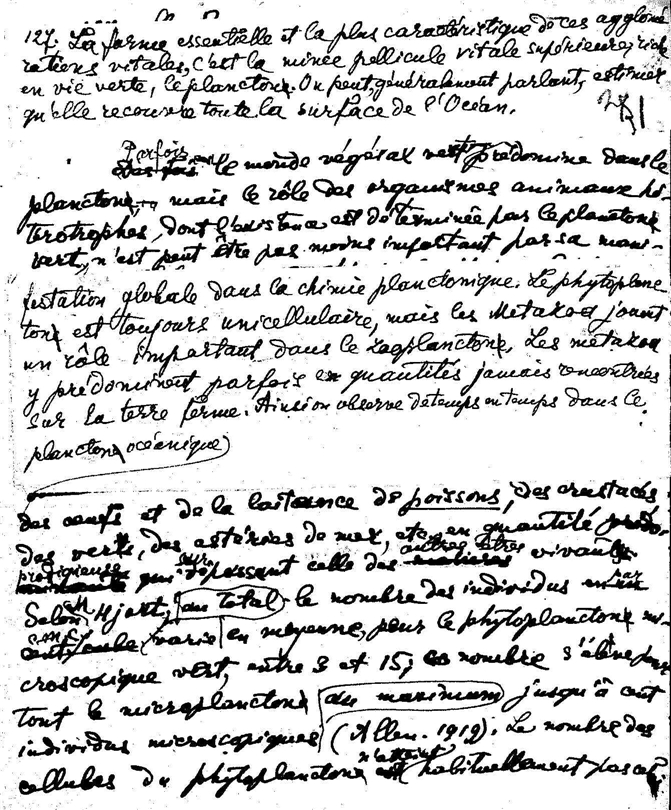 127. La forme essentielle et la plus caractéristique de ces agglomé-
rations vitales, c'est la mince pellicule vitale supérieure, riche
en vie verte, le planctone. On peut, généralement parlant, estimer
qu'elle recouvre toute la surface de l'Océan.
Parfois le monde végétal vert prédomine dans le
planctone, mais le rôle des organismes animaux hé-
térotrophes, dont l'existence est déterminée par le planctone
vert, n'est peut être pas moins important par sa mani-
festation globale dans la chimie planctonique. Le phytoplanc
tone est toujours unicellulaire, mais les Metazoa jouent
un rôle important dans le zooplanctone. Les metazoa
y prédominent parfois en quantités jamais rencontrées
sur la terre ferme. Ainsi on observe de temps en temps dans le
planctone océanique
des œufs et de la laitance de poissons, des crustacés
des vers, des astéries de mer, etc, en quantité
prodigieuse qui dépassent celle des autres êtres vivants
Selon M Hjort, au total le nombre des individus par
cm. cube varie en moyenne, pour le phytoplanctone mi-
croscopique vert, entre 3 et 15; ce nombre s'élève pour
tout le microplanctone au maximum jusqu'à cent
individus microscopiques (Allen. 1919). Le nombre des
cellules du phytoplanctone n'atteint habituellement pas ce